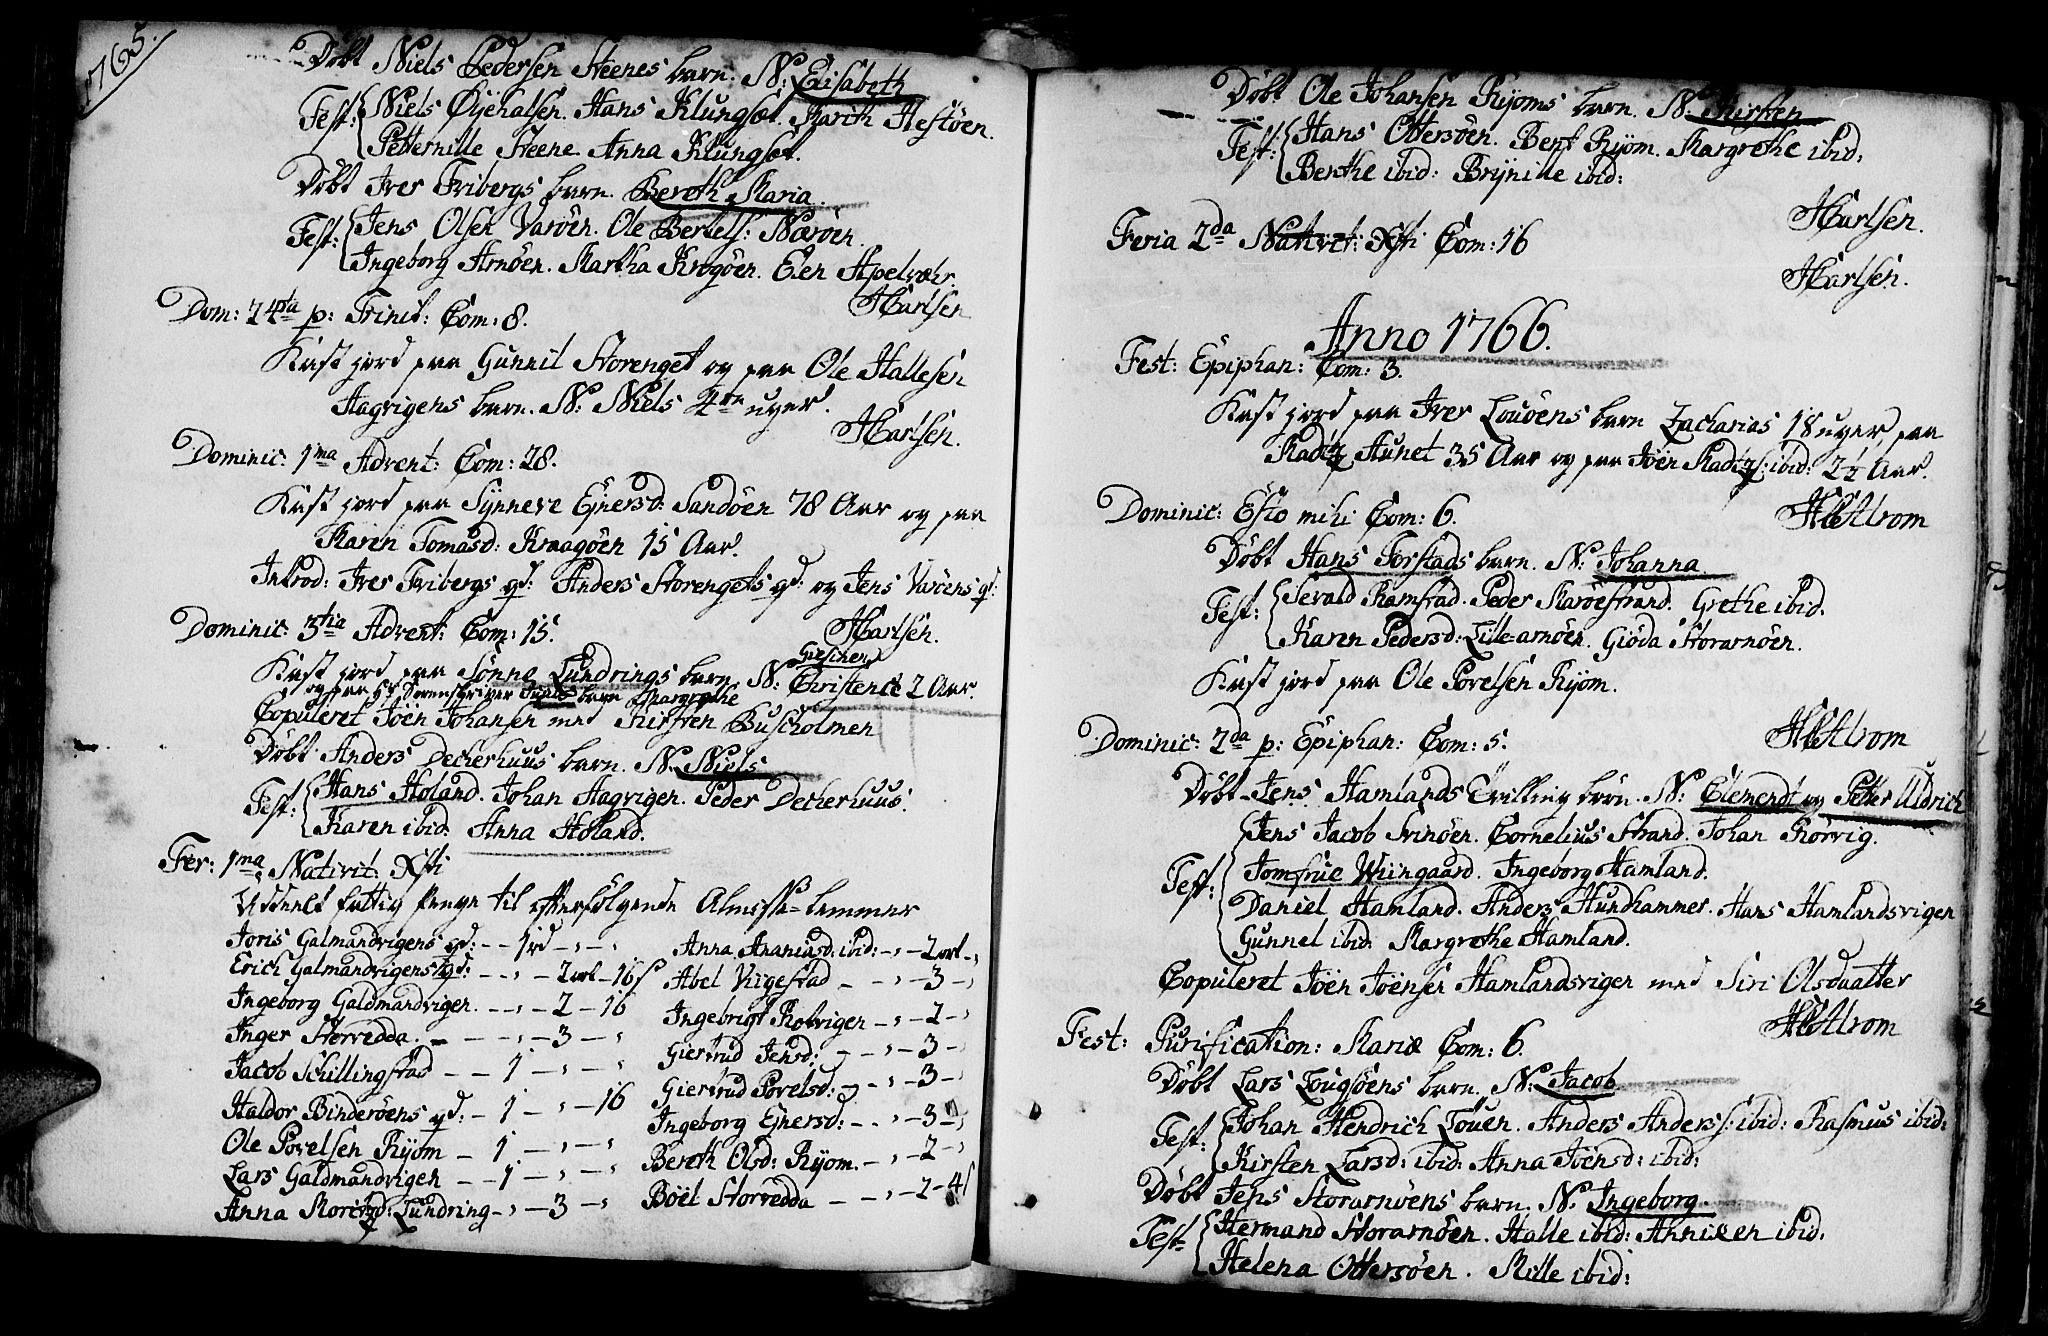 1765.
Döbt Niels Pedersen Steenes barn. N: Elisabeth
Test: Niels Øÿehalsen. Hans Klungset. Marith Hestöen.
Petternille Steene Anna Klungset.
Döbt Iver Fribergs barn. Bereth Maria.
Test: Jens Olsen Varöen. Ole Bertels: Næröen.
Ingeborg Arnöen. Martha Krogöen. Elen Apelvæhr.
HCarlsen
Dom: 24ta p: Trinit: Com: 8.
Kast jord paa Gunnil Storenget og paa Ole Hallesen
Hagrigens barn. N: Niels 4re uger.
HCarlsen.
Dominic: 1ma Advent: Com: 28.
Kast jord paa Synneve Ejnersd: Sandöen 78 Aar og paa
Karen Tomasd: Kraagöen 15 Aar.
Introd: Iver Fribergs qd: Anders Storengets qd: og Jens Varöens qd:
Dominic: 3tia Advent: Com: 15.
HCarlsen.
Kast jord paa Sönne Lundrings barn N: Christence 2 Aar.
og paa Sr Sorenskriver barn Margrethe
Copuleret Joen Johansen med Kirsten Buschholmen
Döbt Anders Deckerhuus barn. N. Niels
Test: Hans Holand. Johan Hagrigen. Peder Deckerhuus.
Karen ibid: Anna Holand.
Fer: 1ma Nativit: Xsti
Uddeelt fattig penge til efterfölgende Almisse-lemmer
Joris Galmandvigens qd: - - 1rd - , - ,
Erich Galmandvigens qd: - - , - 2ort - 16s
Ingeborg Galdmandvigen. - - , - 2 - 16
Inger Storredda. - - - , - 3 - ,
Jacob Schillingstad - - 1 - , - ,
Haldor Binderöens qd: - 1 - , - 16
Ole Povelsen Ryom - 1 - , - ,
Lars Galdmandvigen - - 1 - , - ,
Anna Moritzd: Lundring - , - 3 - ,
Anna Ananiasd: ibid: - , - 2ort - ,
Abel Viigestad - - , - 3 - ,
Ingebrigt Rotvigen - , - 2 - ,
Giertrud Jensd: - , - 3 - ,
Giertrud Povelsd: - , - 3 - ,
Ingeborg Ejnersd: - , - 3 - ,
Bereth Olsd: Ryom. - , - 2 - ,
Böel Storredda - - , - 2 - 4s
Döbt Ole Johansen Ryoms barn. N. Kirsten
Test: Hans Ottersöen. Bent Ryom. Margrethe ibid:
Berthe ibid: Brynille ibid:
HCarlsen.
Feria 2da Nativit: Xsti Com: 16
HCarlsen.
Anno 1766.
Fest: Epiphan: Com: 3.
Kast jord paa Iver Louöens barn Zacharias 18 uger, paa
Madtz Aunet 35 Aar og paa Joen Madtzs: ibid: 2½ Aar.
Dominic: Esto mihi Com: 6.
HCAstrom
Döbt Hans Forstads barn. N: Johanna
Test: Sevald Ramstad. Peder Maroestrand. Grethe ibid.
Karen Pedersd: Lille-arnöen. Gioda Storarnöen.
Kast jord paa Ole Povelsen Ryom.
HCAstrom
Dominic: 2da p: Epiphan: Com: 5.
Döbt Jens Hamlands Tvilling börn. N: Clemendt og Petter Uldrich
Test: Jens Jacob Svinöen. Cornelius Strand. Johan Rörvig.
Jomfrue Wiingaard. Ingeborg Hamland.
Daniel Hamland. Anders Hundhammer. Hans Hamlandsvigen
Gunnel ibid: Margrethe Hamland.
Copuleret Joen Joensen Hamlandsvigen med Siri Olsdaatter
HCAstrom
Fest: Purification: Mariæ Com: 6.
Döbt Lars Lougöens barn. N: Jacob
Test: Johan Hendrich Louen. Anders Anderss: ibid: Rasmus ibid:
Kirsten Larsd: ibid: Anna Joensd: ibid:
Döbt Jens Storarnöens barn. N: Ingeborg
Test: Hermand Storarnöen. Halle ibid: Anniken ibid.
Helena Ottersöen. Mille ibid: